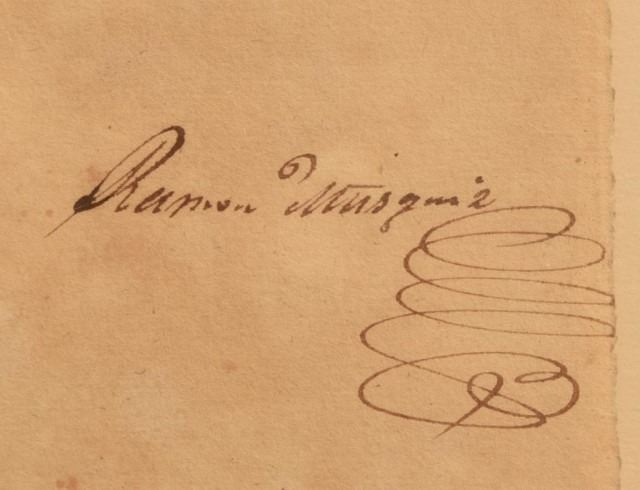 Ramon Musquiz